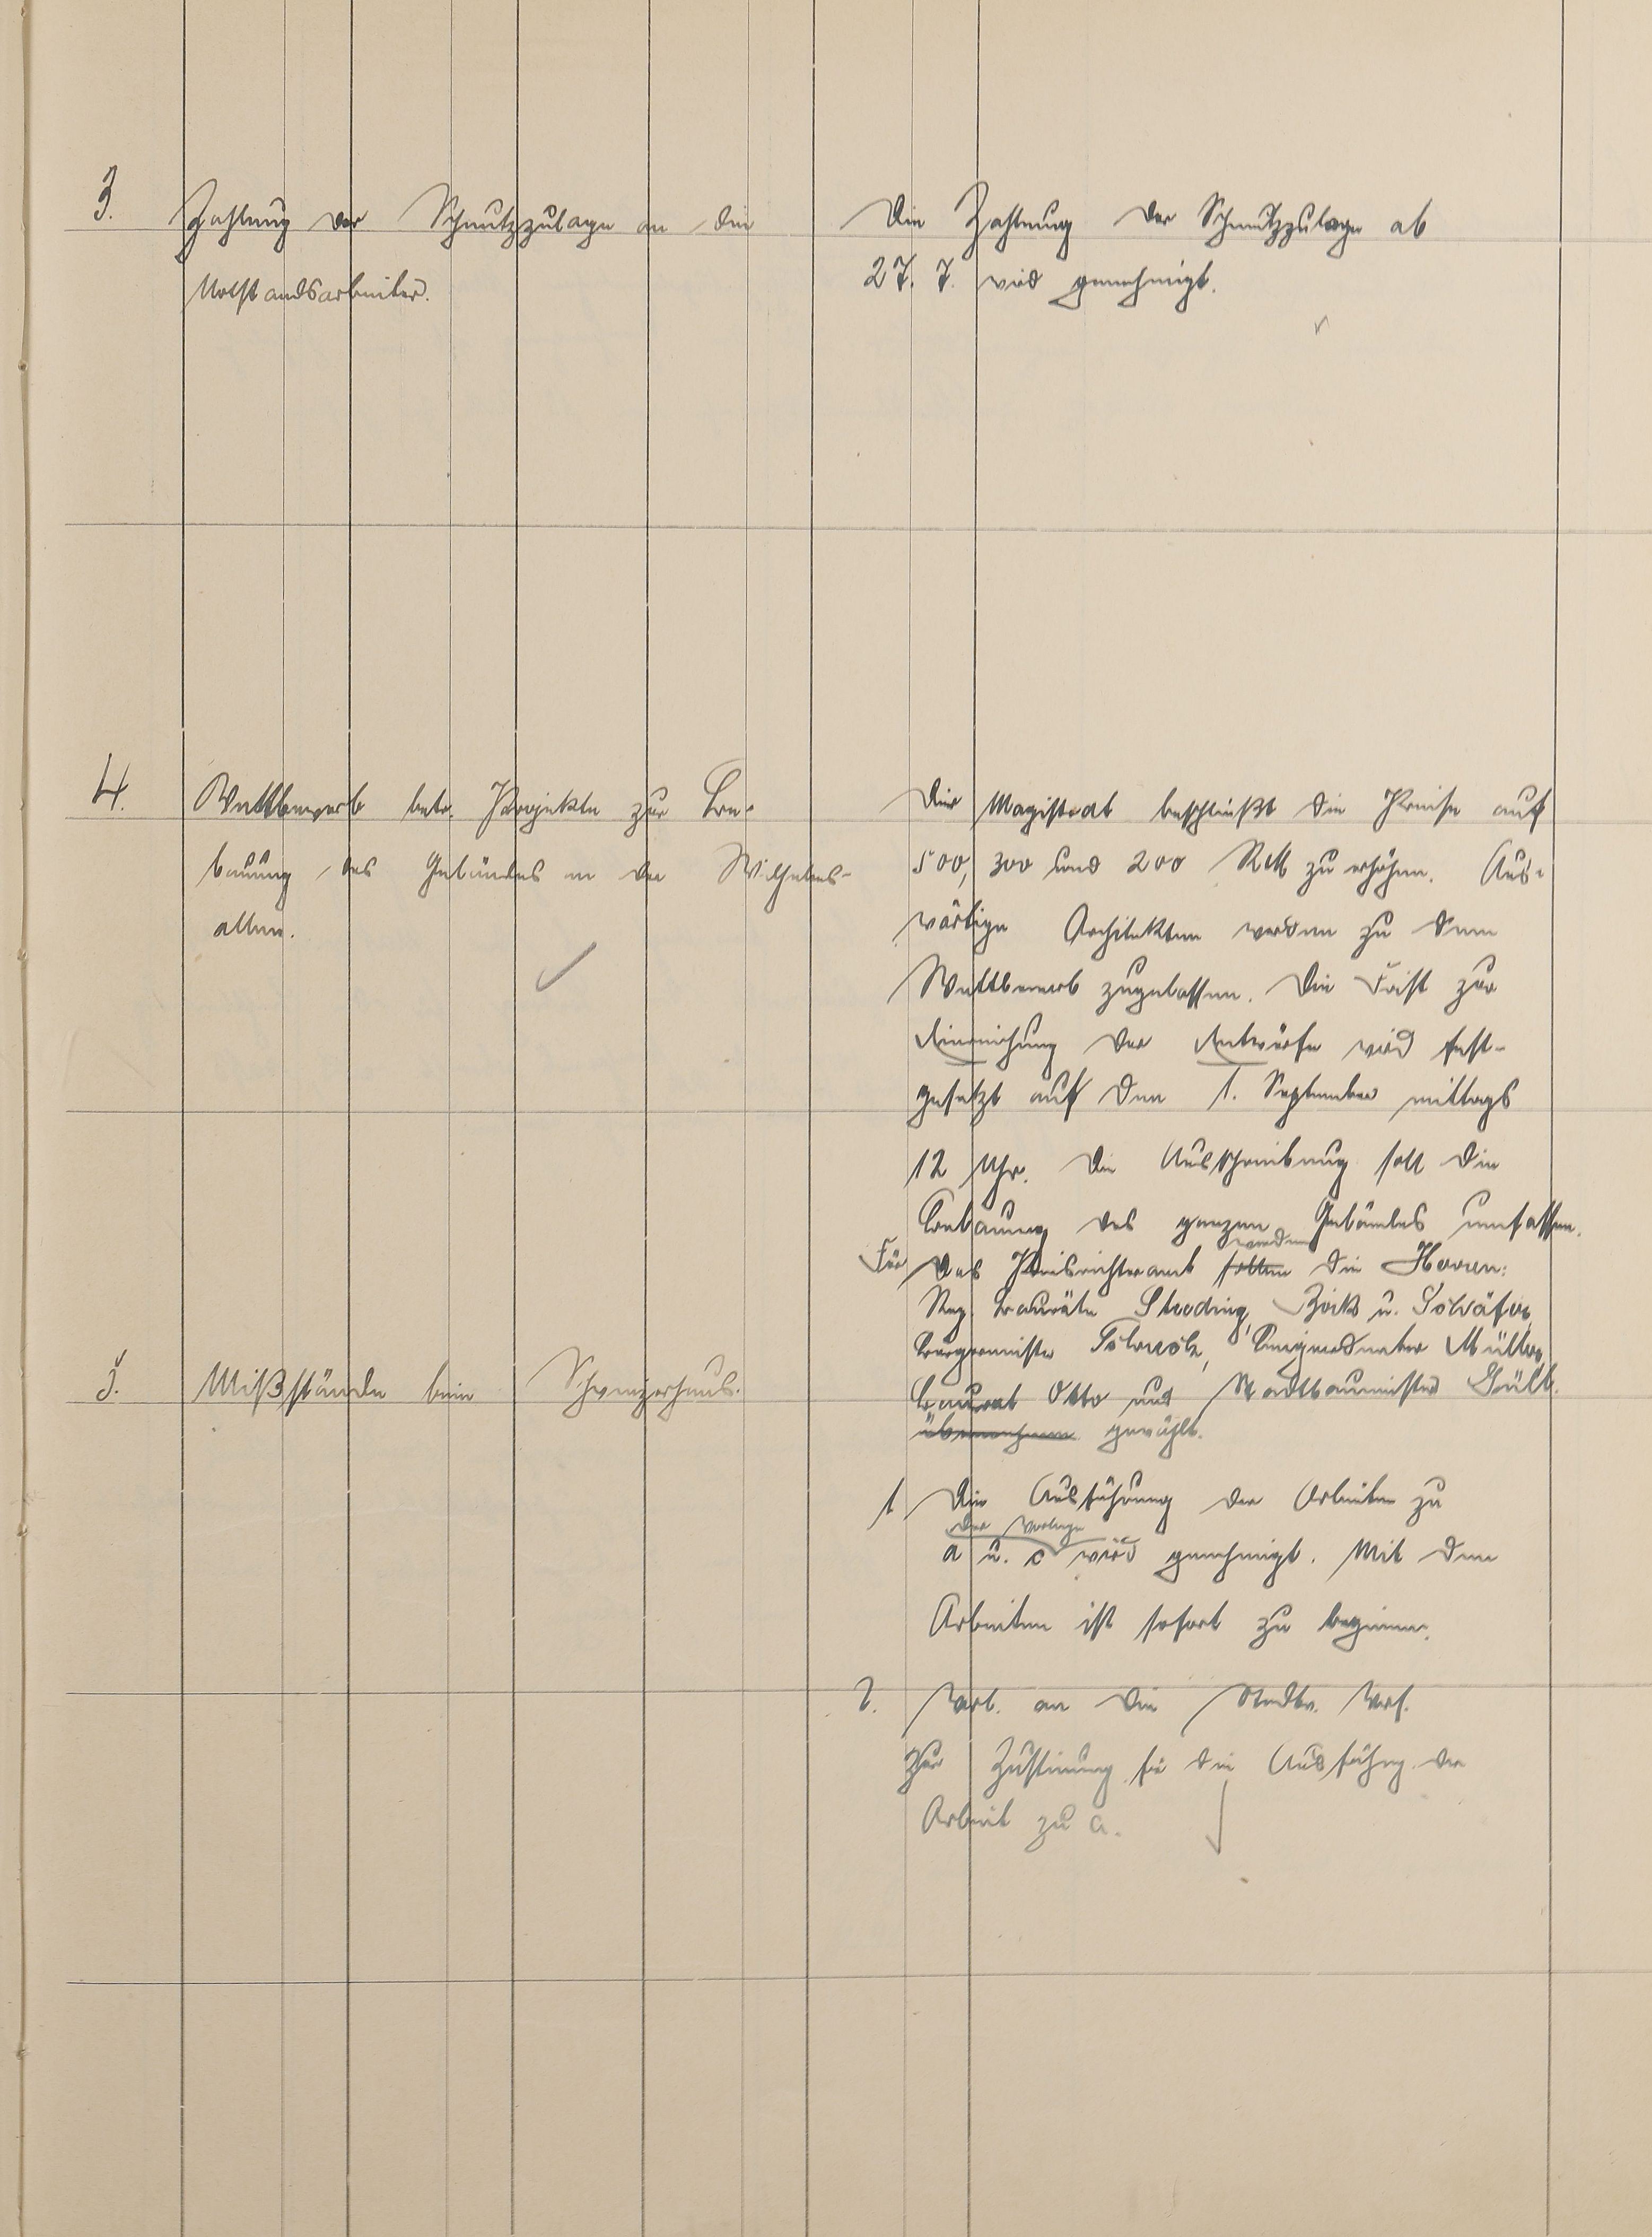 3. Zahlung der Schmutzzulage an die
Notstandsarbeiter.
Die Zahlung der Schmutzzulage ab
27. 7. wird genehmigt.
4. Wettbewerb betr. Projekte zur Be-
bauung des Geländes an der Wilhelms-
allee.
Der Magistrat beschließt die Preise auf
500, 300 und 200 RM zu erhöhen. Aus-
wärtige Architekten werden zu dem
Wettbewerb zugelassen. Die Frist zur
Einreichung der Entwürfe wird fest-
gesetzt auf den 1. September mittags
12 Uhr. Die Ausschreibung soll die
Bebauung des ganzen Geländes umfassen.
werden
Für das Preisrichteramt sollen die Herren:
Reg. Bauräte
Bürgermeister Müller
Baurat Otto und Stadtbaumeister
übernehmen gewählt.
5. Mißstände beim Schweizerhaus.
1 Die Ausführung der Arbeiten zu
der Vorlage
a u. c wird genehmigt. Mit den
Arbeiten ist sofort zu beginnen.
2. Vorl. an die Stadtv. Vers.
zur Zustimmung für die Ausführg. der
Arbeit zu a.